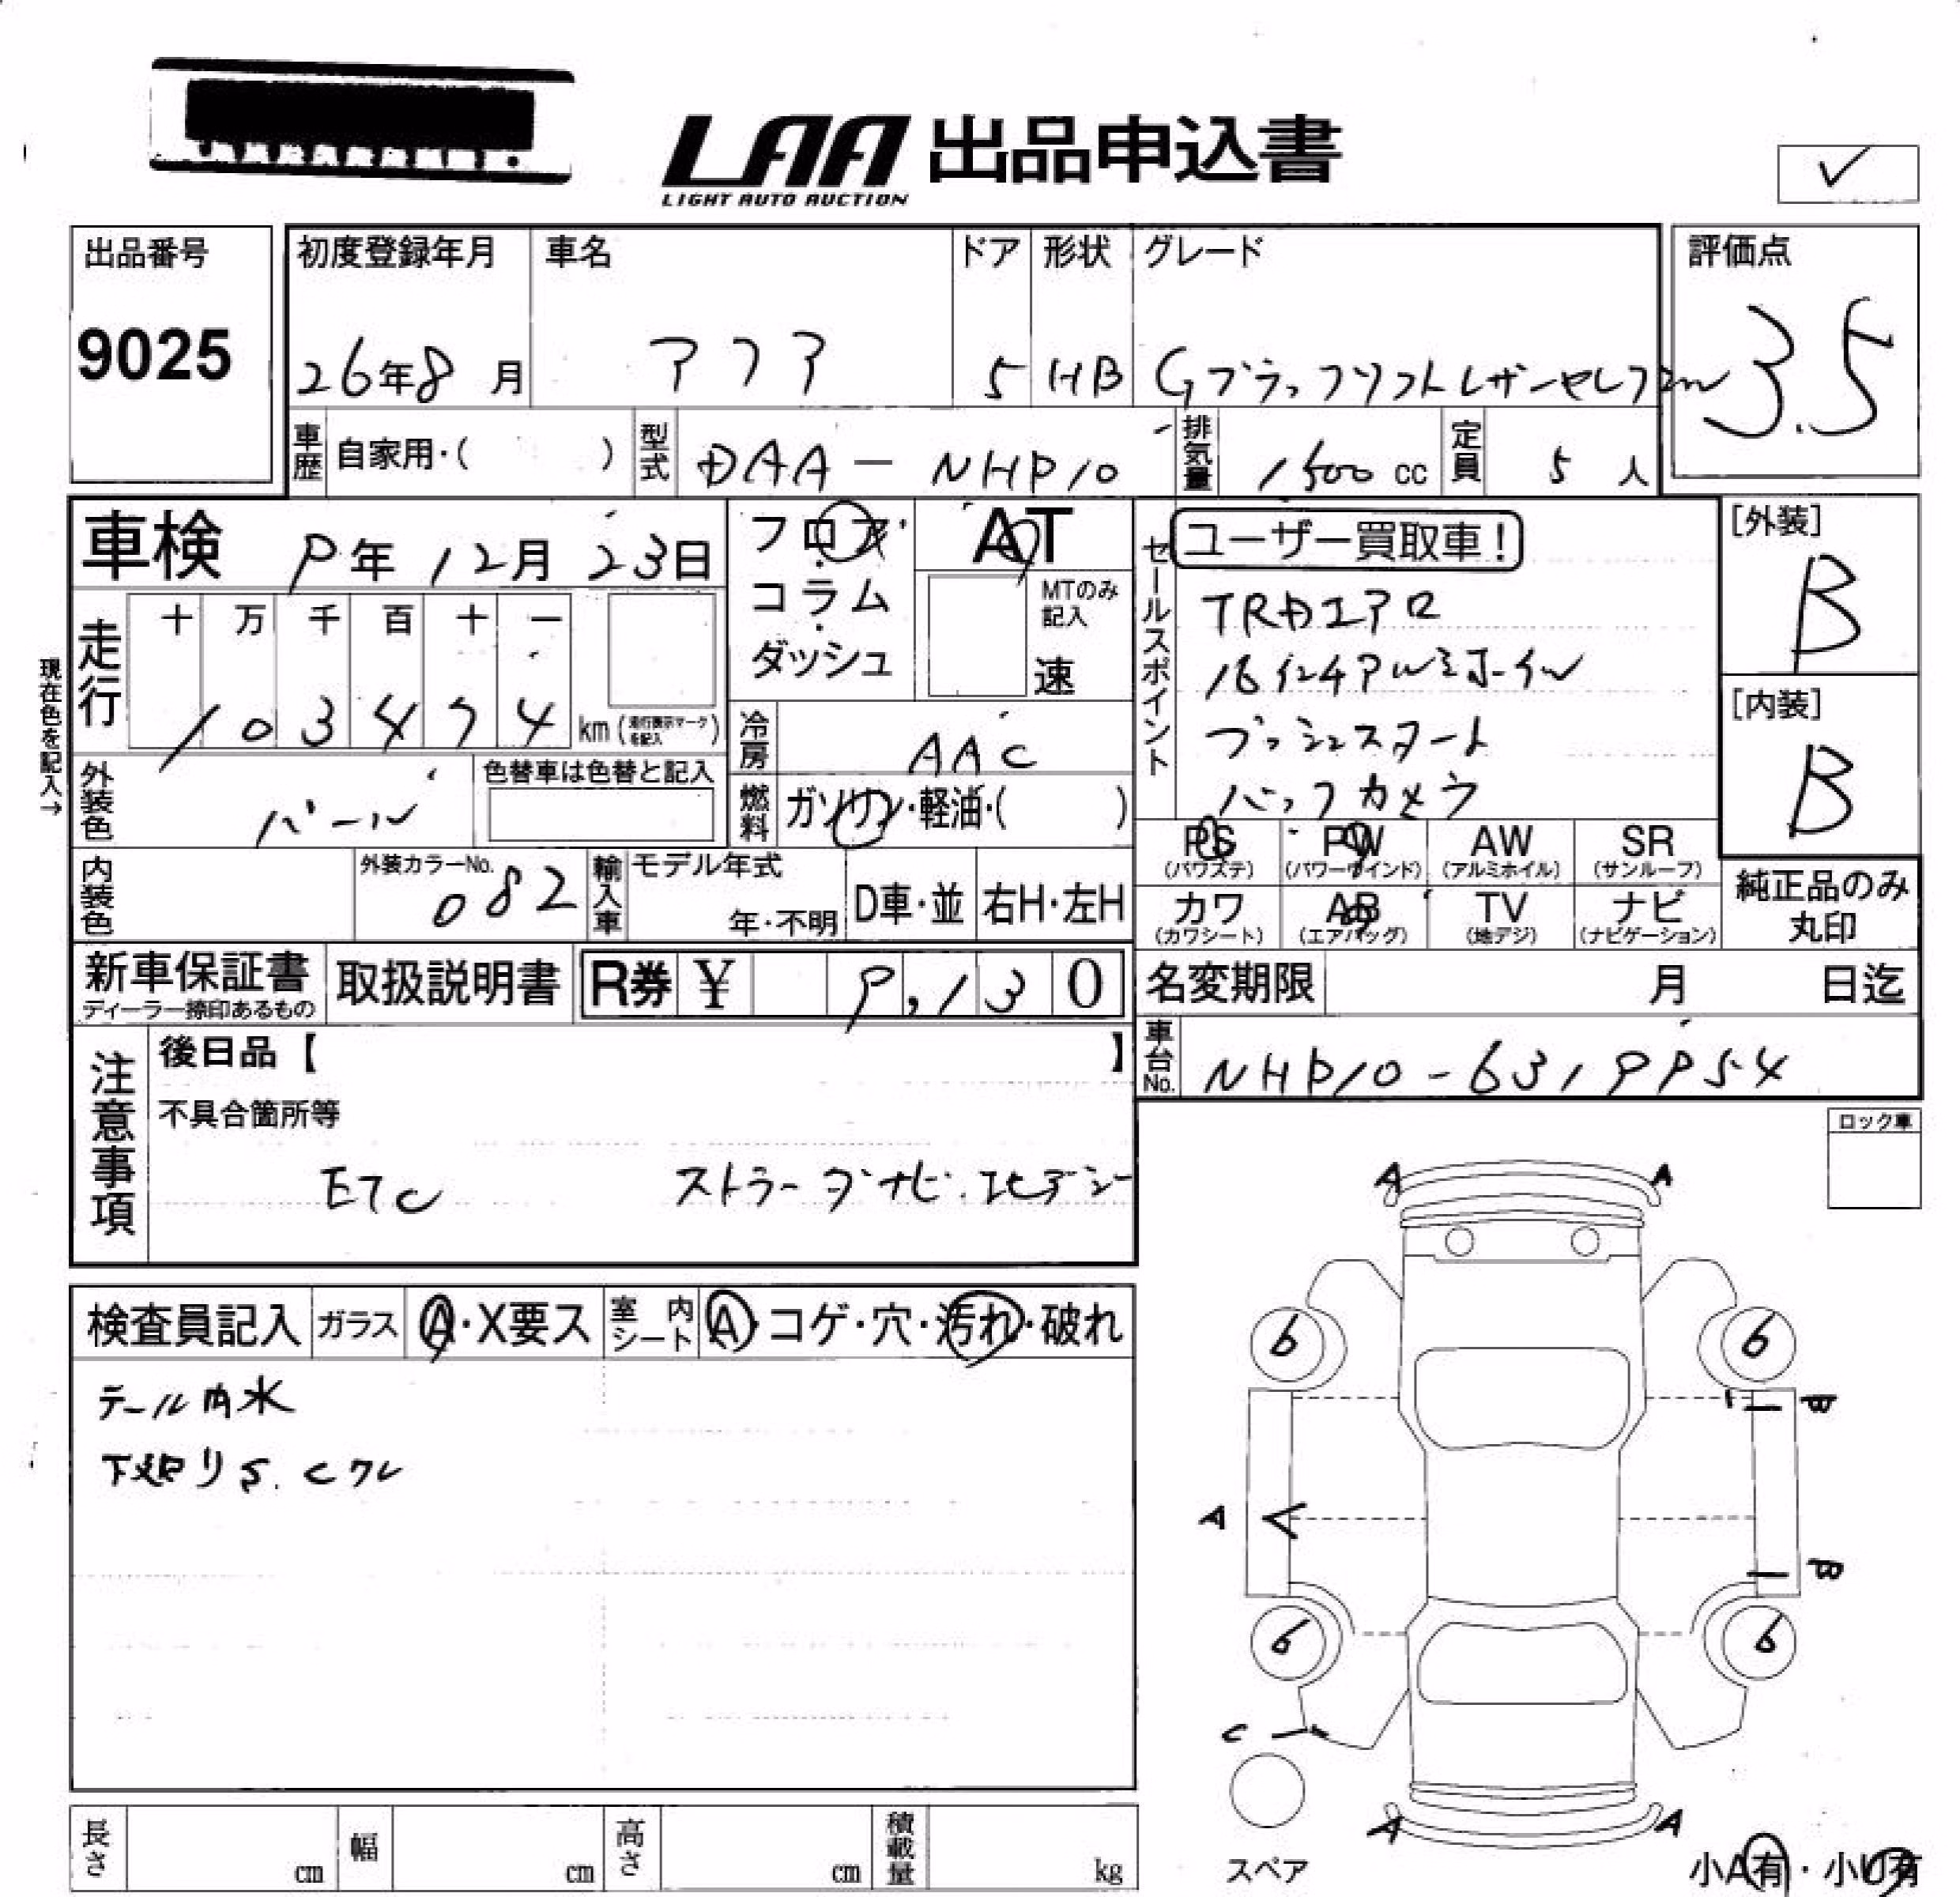 LAA 出品申込書
LIGHT AUTO AUCTION
出品番号
9025
初度登録年月
26年8月
車名
アクア
ドア
5
形状
HB
グレード
Gブラックソフトレザーセレクション
評価点
3.5
車歴 自家用・( )
型式 DAA-NHP10
排気量 1500 cc
定員 5人
車検 9年12月23日
フロア・
コラム・
ダッシュ
AT
MTのみ記入
速
現在色を記入→
走行
十 万 千 百 十 一
1 0 3 4 7 4 km (走行表示マークを記入)
冷房 AAC
外装色 パール
色替車は色替と記入
燃料 ガソリン・軽油・( )
セールスポイント
ユーザー買取車!
TRDエアロ
16インチアルミホイル
プッシュスタート
バックカメラ
[外装]
B
[内装]
B
PS (パワステ)
PW (パワーウインド)
AW (アルミホイル)
SR (サンルーフ)
カワ (カワシート)
AB (エアバッグ)
TV (地デジ)
ナビ (ナビゲーション)
純正品のみ
丸印
内装色
外装カラーNo. 082
輸入車
モデル年式
年・不明
D車・並
右H・左H
新車保証書
ディーラー捺印あるもの
取扱説明書
R券 ¥ 9,130
名変期限 月 日迄
車台No. NHP10-6319954
注意事項
後日品【 】
不具合箇所等
ETC ストラーダナビ.
ロック車
検査員記入
ガラス A・X要ス
室内シート A・コゲ・穴・汚れ・破れ
テール内水
下廻りS.Cアレ
A A
6 6
B
A
B
6 6
C
A A
スペア
小A有・小U有
長さ cm
幅 cm
高さ cm
積載量 kg